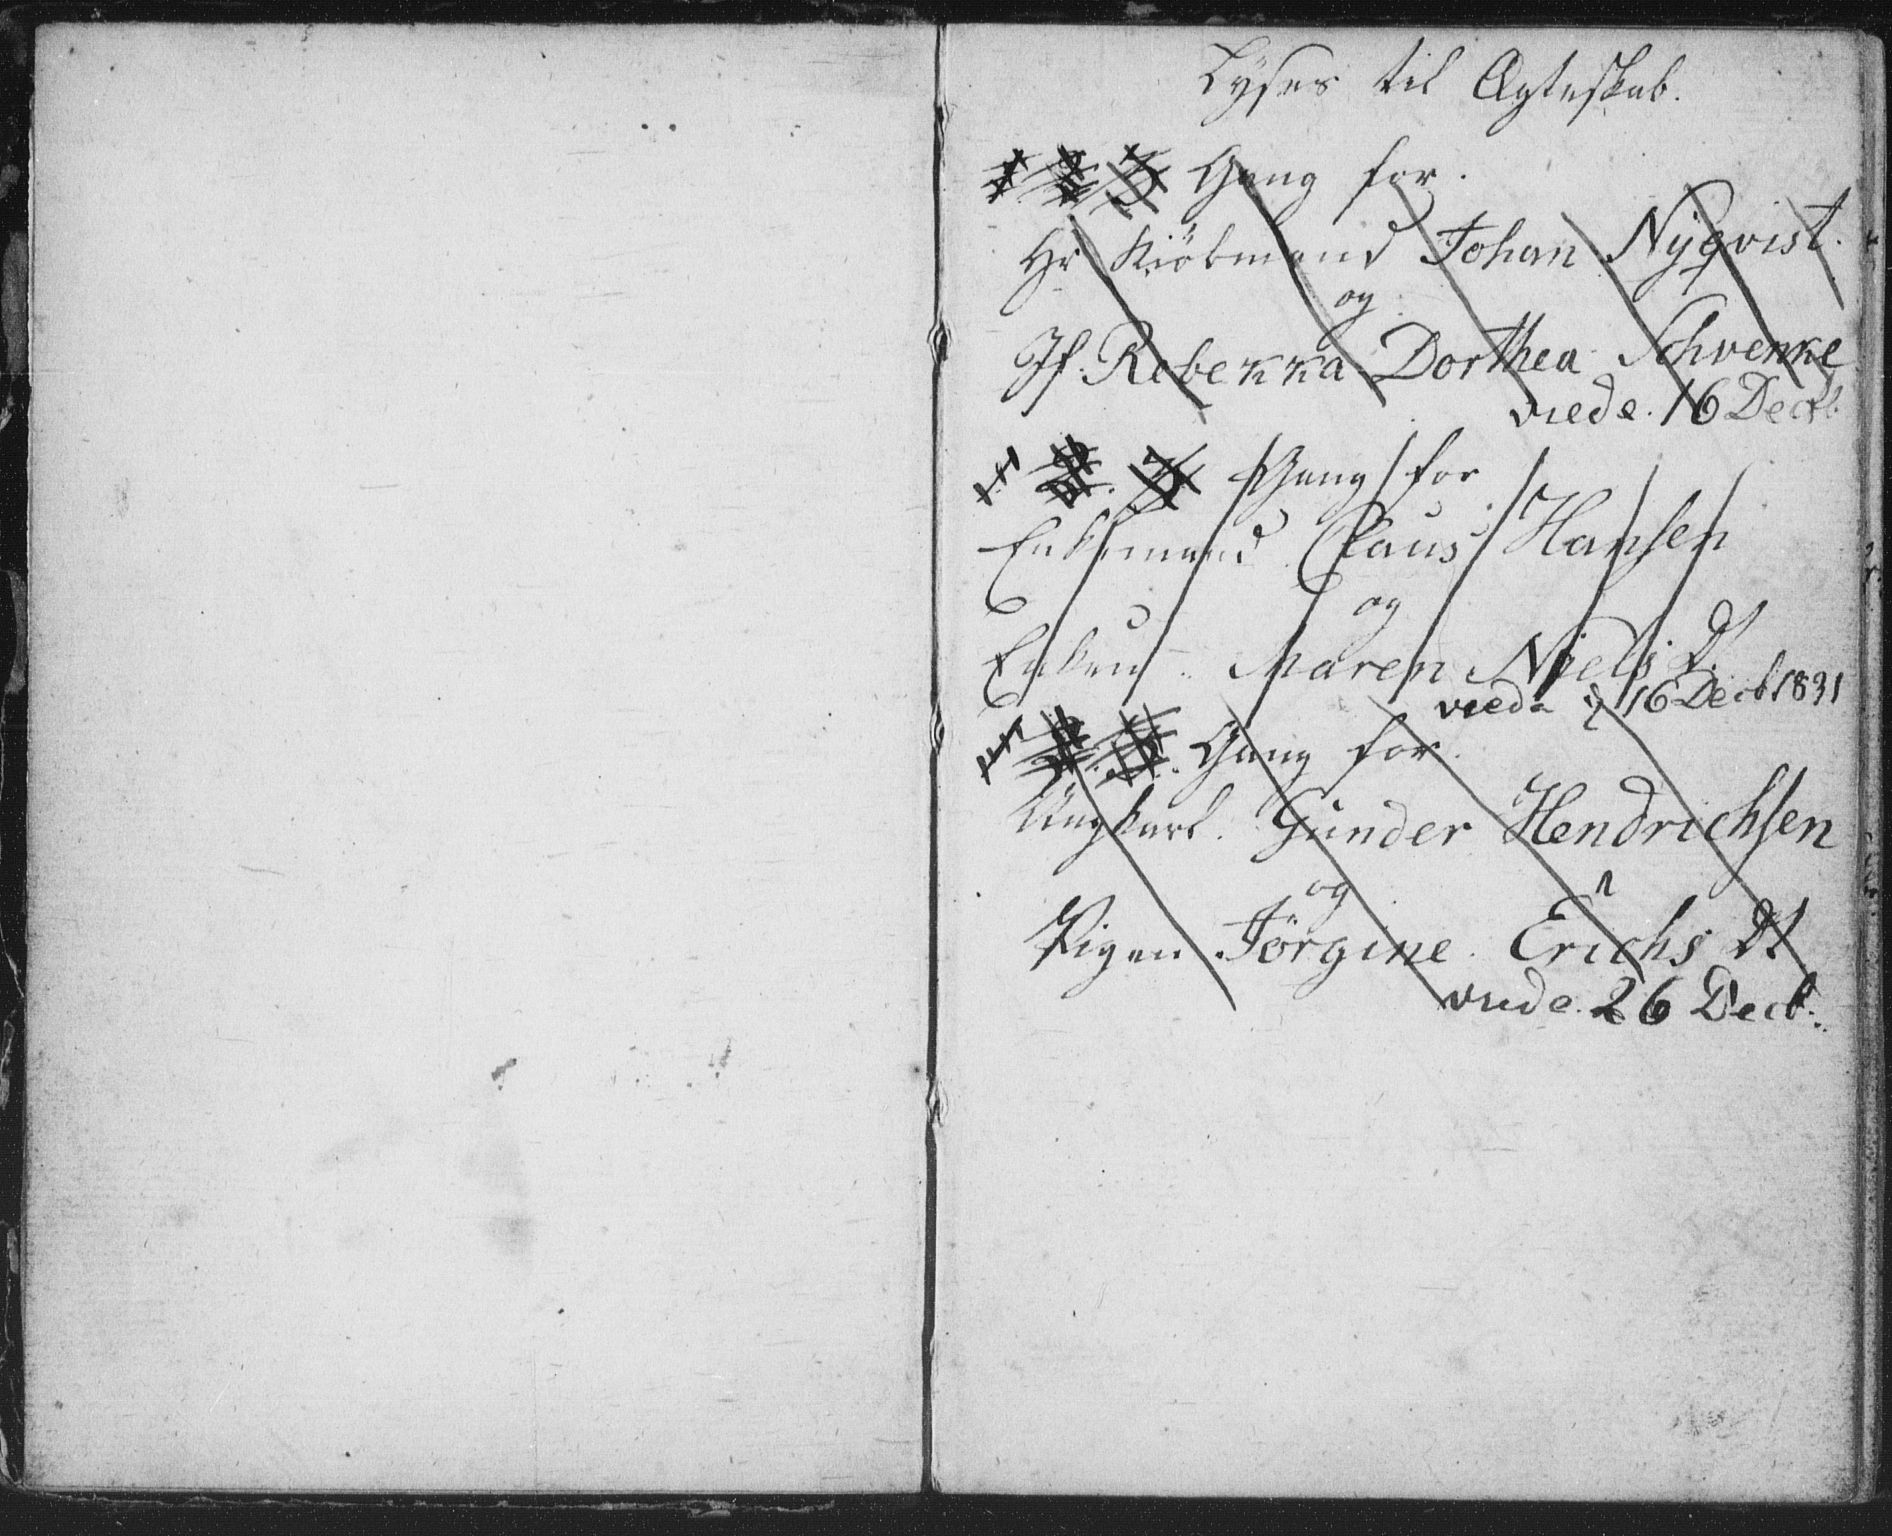 Lyses til Ægteskab.
1 2 3 Gang for.
Hr Kiöbmand Johan Nyqvist.
og
Jf. Rebekka Dorthea Schvenke
viede. 16 Decb.
1. 2. 3 Gang for
Enkemand Claus Hansen
og
Enken Maren Niels D.
viede 16 Decb 1831
1. 2. 3. Gang for.
Ungkarl. Gunder Hendrichsen
og
Pigen Jörgine Erichs Dt
viede. 26 Decb.